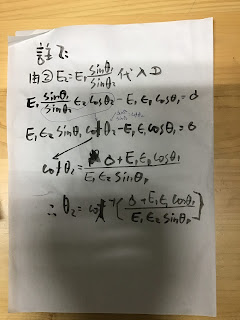 證:
由② E₂=E₁ sinθ₁/sinθ₂ 代入①
E₁ sinθ₁/sinθ₂ ε₂ cosθ₂ - E₁ ε₁ cosθ₁ = δ
E₁ ε₂ sinθ₁ cotθ₂ - E₁ ε₁ cosθ₁ = δ
cotθ₂ = δ+E₁ε₁cosθ₁ / E₁ ε₂ sinθ₁
∴ θ₂ = cot⁻¹{ δ+E₁ε₁cosθ₁ / E₁ ε₂ sinθ₁ }